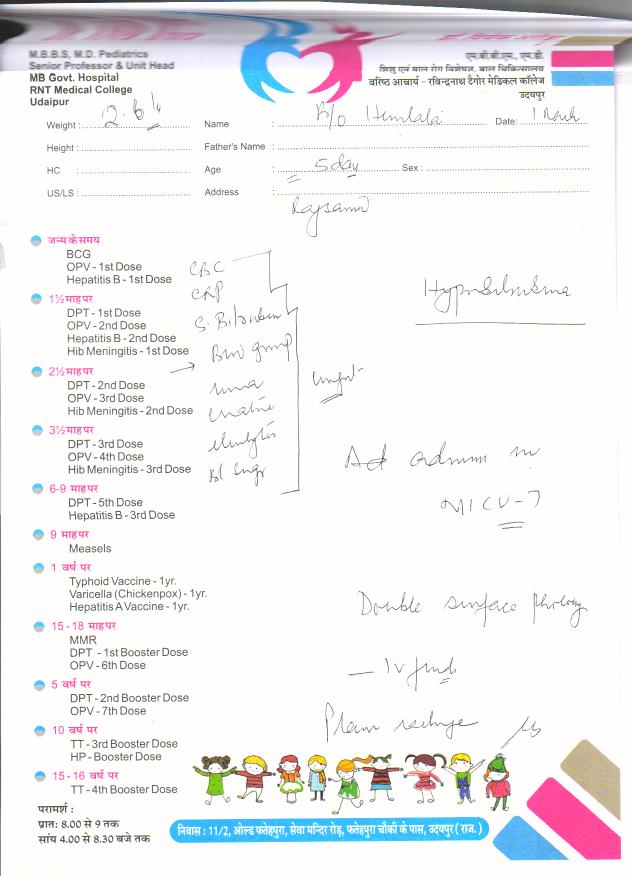 M.B.B.S, M.D. Pediatrics
Senior Professor & Unit Head
MB Govt. Hospital
RNT Medical College
Udaipur
एम.बी.बी.एस., एम.डी.
शिशु एवं बाल रोग विशेषज्ञ, बाल चिकित्सालय
वरिष्ठ आचार्य - रविन्द्रनाथ टैगोर मेडिकल कॉलेज
उदयपुर
Weight : Name : B/o Hemlata Date: 1 March
Height : Father's Name :
HC : Age : 5 day Sex :
US/LS : Address :
Rajsamand
जन्म के समय
BCG
OPV - 1st Dose
Hepatitis B - 1st Dose
CBC
CRP
S. Bilirubin
Blood group
urea
creatinine
electrolytes
Bl sugar
urgent
1½ माह पर
DPT - 1st Dose
OPV - 2nd Dose
Hepatitis B - 2nd Dose
Hib Meningitis - 1st Dose
2½ माह पर
DPT - 2nd Dose
OPV - 3rd Dose
Hib Meningitis - 2nd Dose
3½ माह पर
DPT - 3rd Dose
OPV - 4th Dose
Hib Meningitis - 3rd Dose
6-9 माह पर
DPT - 5th Dose
Hepatitis B - 3rd Dose
9 माह पर
Measels
1 वर्ष पर
Typhoid Vaccine - 1yr.
Varicella (Chickenpox) - 1yr.
Hepatitis A Vaccine - 1yr.
15 - 18 माह पर
MMR
DPT - 1st Booster Dose
OPV - 6th Dose
5 वर्ष पर
DPT - 2nd Booster Dose
OPV - 7th Dose
10 वर्ष पर
TT - 3rd Booster Dose
HP - Booster Dose
15 - 16 वर्ष पर
TT - 4th Booster Dose
Ad admm in
NICU -
Double surface
IV fluids
परामर्श :
प्रात: 8.00 से 9 तक
सांय 4.00 से 8.30 बजे तक
निवास : 11/2, ओल्ड फतेहपुरा, सेवा मन्दिर रोड़, फतेहपुरा चौकी के पास, उदयपुर ( राज. )